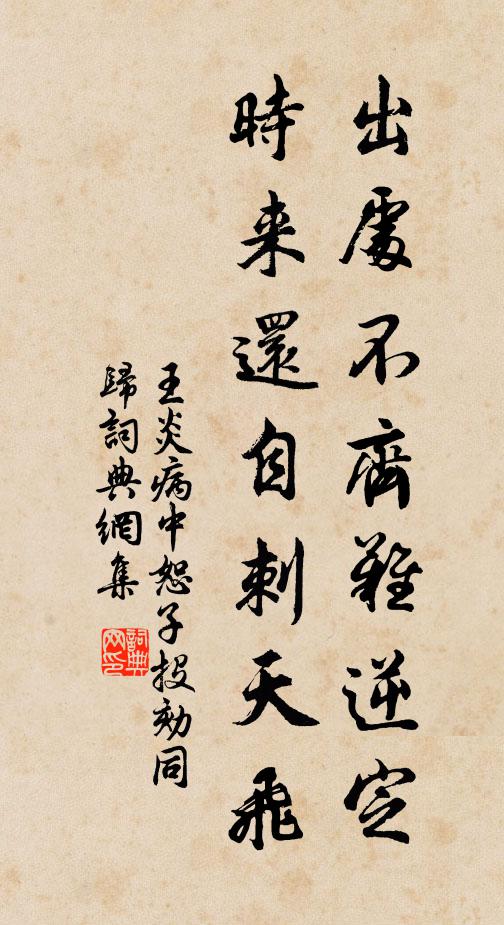 出處不齊難逆定
時来還自刺天飛
王炎病中恕子投劾同
歸詞典網集
詞典
网印